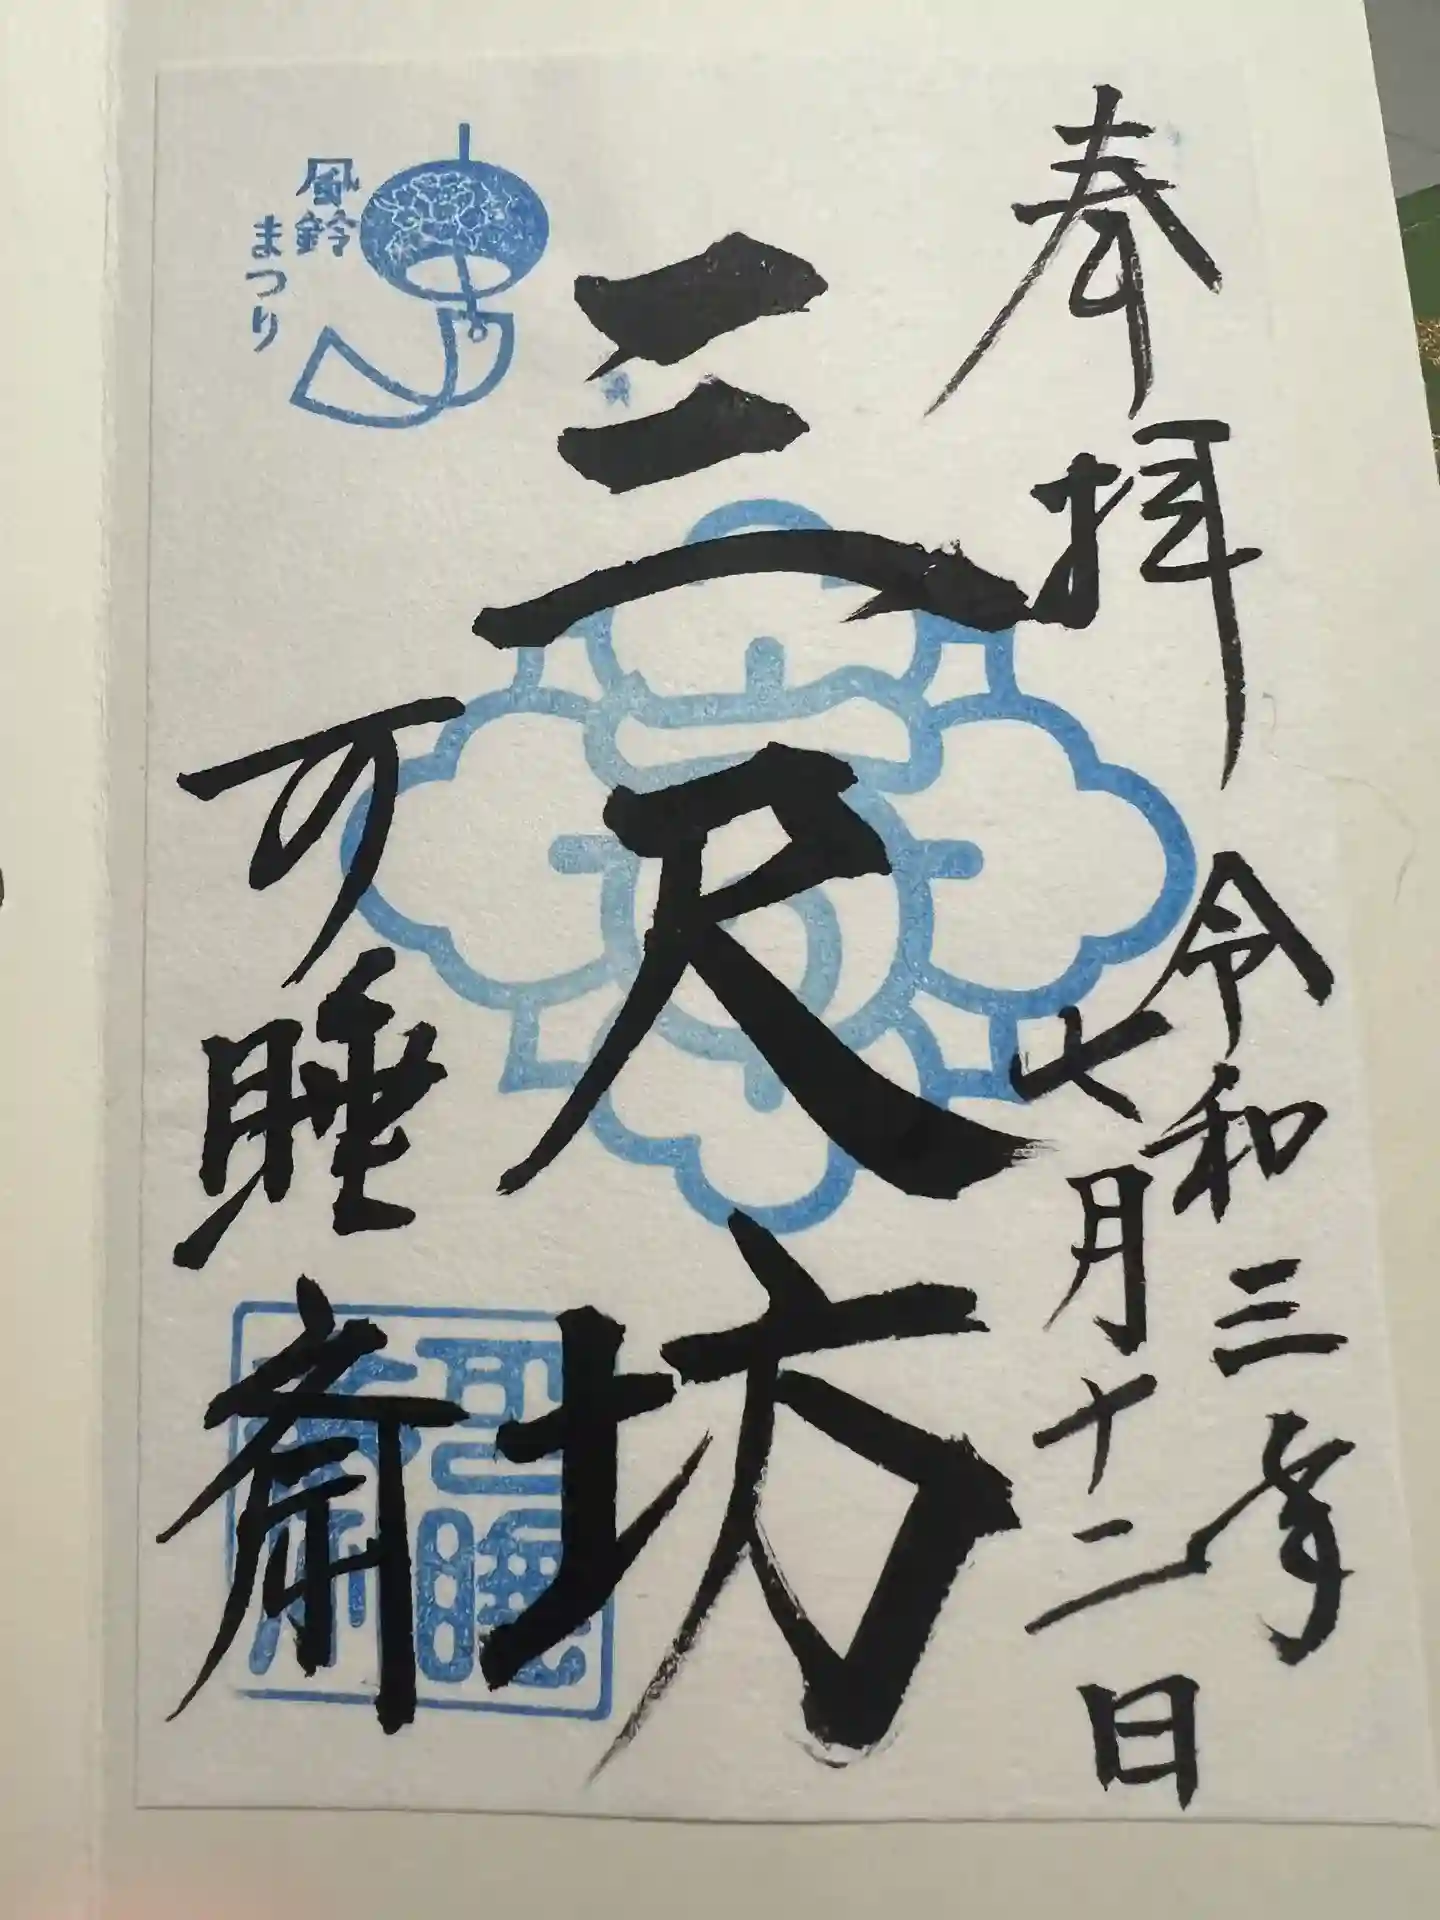 奉拝
令和三年
七月十二日
三尺坊
可睡斎
風鈴
まつり
可睡
斎印